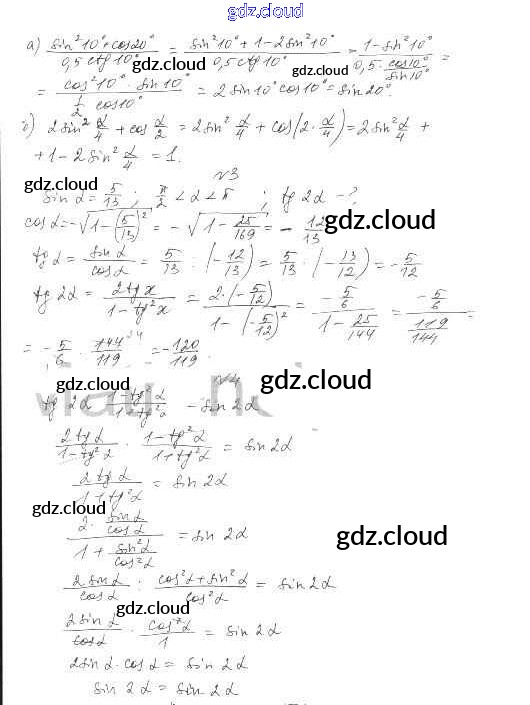 gdz.cloud
а) (sin²10°+cos20°)/(0,5ctg10°) = (sin²10°+1-2sin²10°)/(0,5ctg10°) = (1-sin²10°)/(0,5·cos10°/sin10°) =
= (cos²10°·sin10°)/(½cos10°) = 2sin10°cos10° = sin20°.
б) 2sin²α/4 + cos α/2 = 2sin² α/4 + cos(2·α/4) = 2sin²α/4 +
+ 1 - 2sin² α/4 = 1.
gdz.cloud
gdz.cloud
gdz.cloud
N3
sin α = 5/13 ; π/2 < α < π ; tg 2α - ?
cos α = -√(1-(5/13)²) = -√(1-25/169) = -12/13
gdz.cloud
tg α = sin α/cos α = 5/13 : (-12/13) = 5/13 · (-13/12) = -5/12
tg 2α = 2tg x/(1-tg²x) = 2·(-5/12)/(1-(-5/12)²) = (-5/6)/(1-25/144) = (-5/6)/(119/144) =
= -5/6 · 144²⁴/119 = -120/119.
gdz.cloud
gdz.cloud
N4
tg 2α · (1-tg²α)/(1+tg²α) = sin 2α
2tgα/(1-tg²α) · (1-tg²α)/(1+tg²α) = sin 2α
2tgα/(1+tg²α) = sin 2α
gdz.cloud
(2·sinα/cosα)/(1+sin²α/cos²α) = sin 2α
gdz.cloud
2sinα/cosα : (cos²α+sin²α)/cos²α = sin 2α
gdz.cloud
2sinα/cosα · cos²α/1 = sin 2α
2sin α·cos α = sin 2α
sin 2α = sin 2α
gdz.cloud